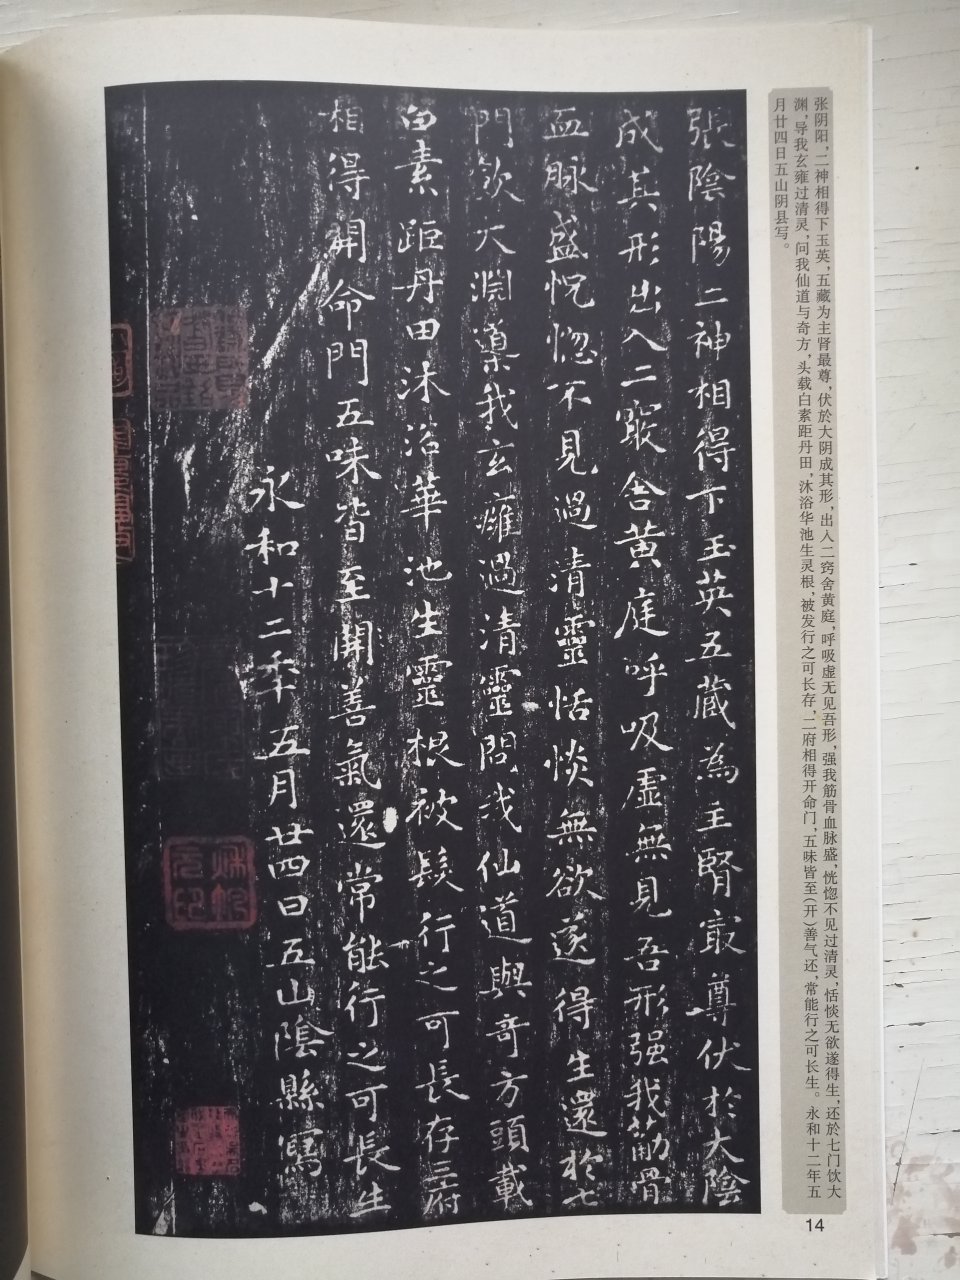 张阴阳，二神相得下玉英，五藏为主肾最尊，伏於大阴成其形，出入二窍舍黄庭，呼吸虚无见吾形，强我筋骨血脉盛，恍惚不见过清灵，恬惔无欲遂得生，还於七门饮大
渊，导我玄雍过清灵，问我仙道与奇方，头载白素距丹田，沐浴华池生灵根，被发行之可长存，二府相得开命门，五味皆至（开）善气还，常能行之可长生。永和十二年五
月廿四日五山阴县写。
張陰陽二神相得下玉英五藏為主腎最尊伏於大陰
成其形出入二竅舍黄庭呼吸虛無見吾形强我筋骨
血脉盛怳惚不見過清靈恬惔無欲遂得生還於七
門飲大淵導我玄癰過清靈問我仙道與奇方頭載
白素距丹田沐浴華池生靈根被髮行之可長存二府
相得開命門五味皆至開善氣還常能行之可長生
永和十二年五月廿四日五山陰縣寫
14